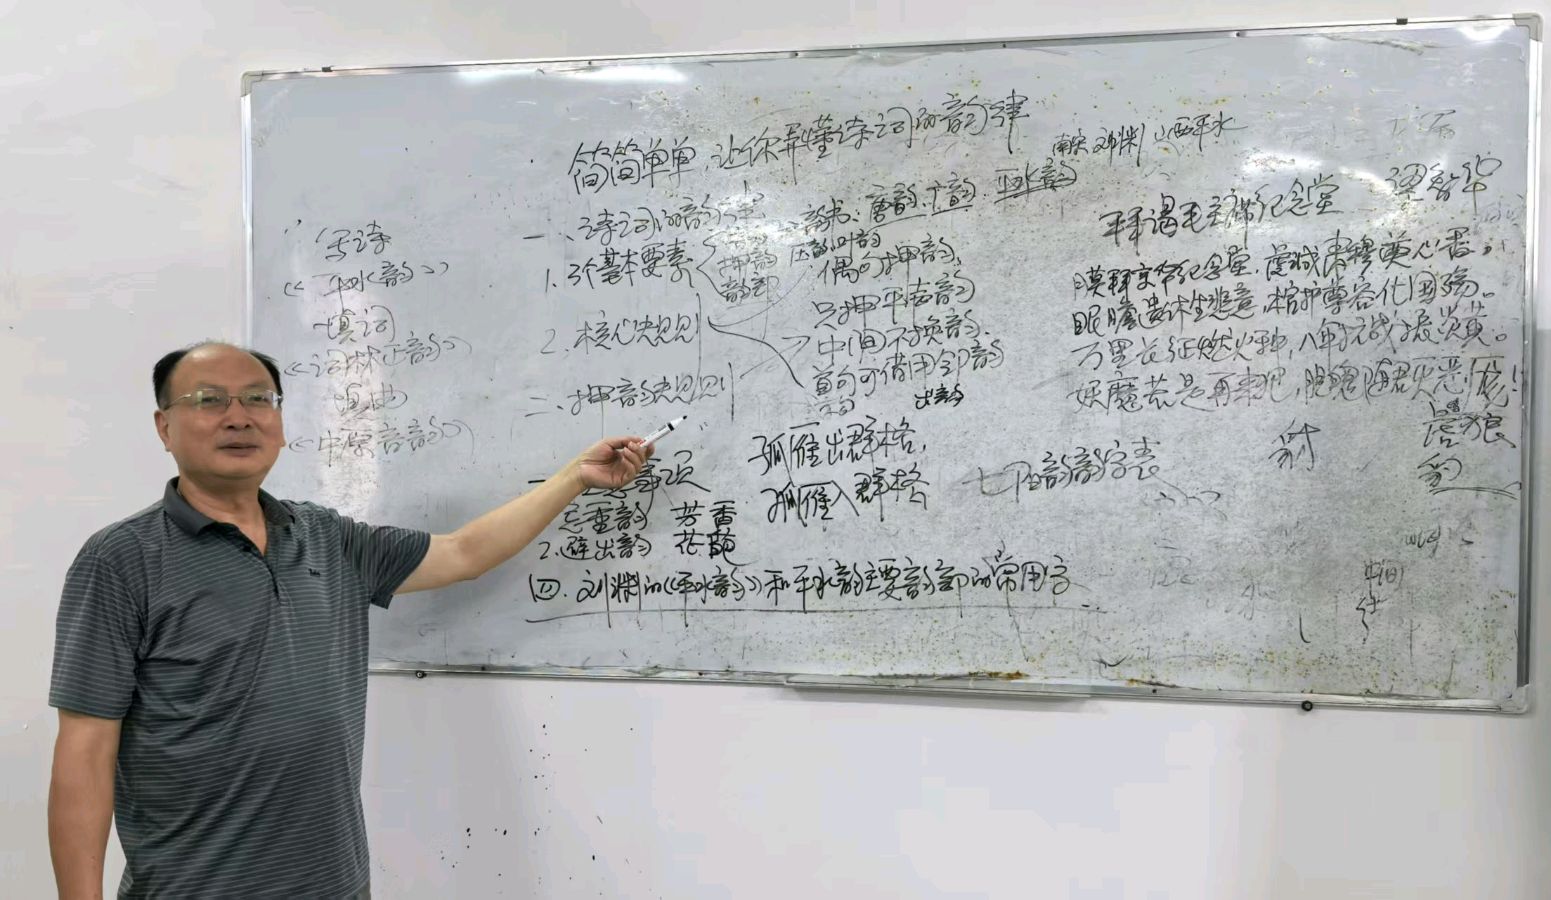 简简单单,让你弄懂诗词的韵律
南宋刘渊 山西平水
写诗
《平水韵》
填词
《词林正韵》
填曲
《中原音韵》
一、诗词的韵律
1.3个基本要素
押韵
韵部
2.核心规则
二、押韵规则
韵书:唐韵、广韵 平水韵
偶句押韵、
只押平声韵
中间不换韵、
首句可借用邻韵
出韵
孤雁出群格,
孤雁入群格
七阳韵韵字表
事项
忌重韵 芳香
2.避出韵 花
四、刘渊的《平水韵》和平水韵主要韵部的常用字
拜谒毛主席纪念堂
膜拜京华纪念堂,虔诚肃穆奠心香。
眼瞻遗体生悲意,棺护尊容化国殇。
万里长征燃火种,八年抗战振炎黄。
妖魔若是再来犯,
豺
狼
豹
中间